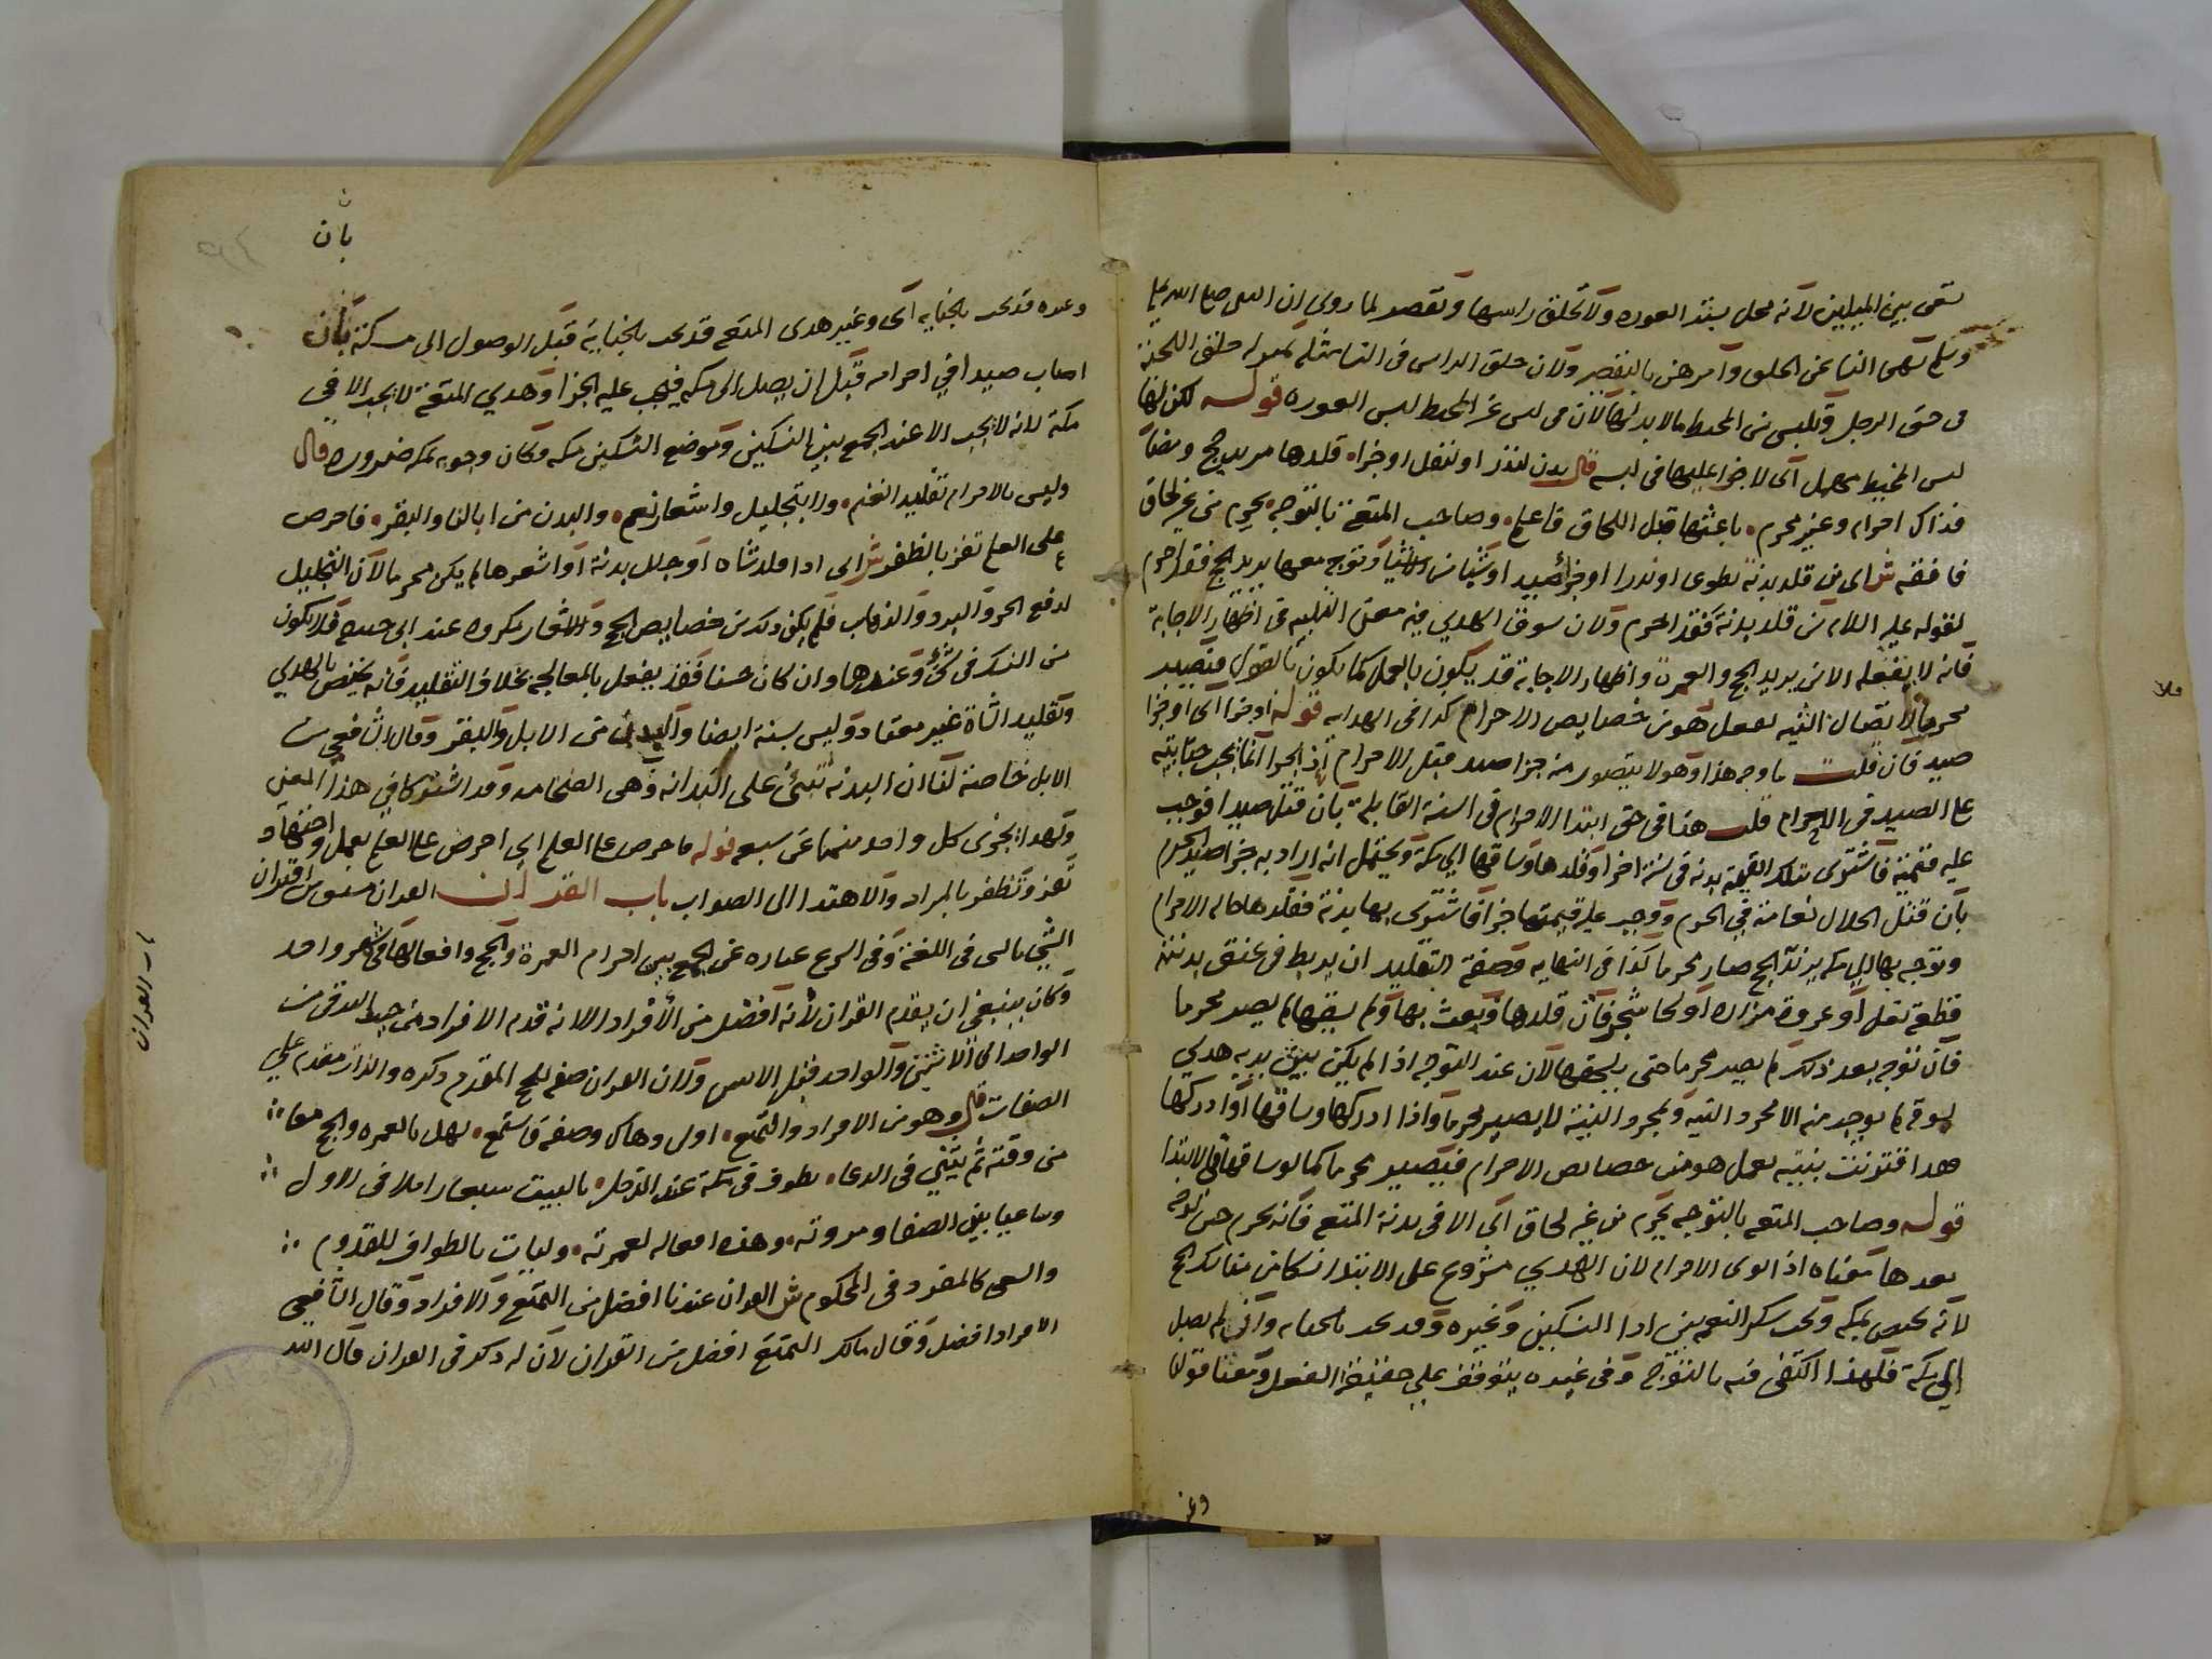 تسعى بين الميلين لانه مخل بستر العوره ولا تحلق راسها وتقصر لما روي ان النبي صلى الله عليه
وسلم نهى النسا عن الحلق وامرهن بالتقصير ولان حلق الراس في النسا مثله كحلق اللحية
في حق الرجل وتلبس من المخيط ما لا بد لها لان في لبس غير المخيط العوره قوله لكن لها
لبس المخيط اى لاجزا عليها في لبسه قال بدن لنذر او لنفل او جزا قلدها مريد حج ومضا
فذاك احرام وغير محرم باعثها قبل اللحاق فاعلم وصاحب المتعة بالتوجه محرم من غير لحاق
فافقه ش اى من قلد بدنة تطوع او نذرا او جزا صيد او شيا من الاشيا وتوجه معها يريد الحج فقد احرم
لقوله عليه السلام من قلد بدنة فقد احرم ولان سوق الهدي في معنى التلبيه في اظهار الاجابة
فانه لا يفعله الا من يريد الحج والعمرة واظهار الاجابة قد يكون بالعمل كما يكون بالقول فيصير
محرما لاتصال النيه بفعل هو من خصايص الاحرام كذا في الهدايه قوله او جزا اى او جزا
صيد فان قلت ما وجه هذا وهو لا يتصور منه جزا صيد قبل الاحرام اذ الجزا انما يجب بجنايته
على الصيد في الاحرام قلت هذا في حق ابتدا الاحرام في السنة القابلة بان قتل صيدا فوجب
عليه قيمته فاشترى بتلك القيمة بدنه في سنة اخرا وقلدها وساقها الى مكة ويحتمل انه اراد به جزا صيد الحرم
بان قتل الحلال نعامة في الحرم ووجب عليه قيمتها جزا فاشترى بها بدنة فقلدها حاله الاحرام
وتوجه بها الى مكه يريد الحج صار محرما كذا في النهايه وصفة التقليد ان يربط في عنق بدنته
قطعة نعل او عروة مزاده او لحا شجر فان قلدها وبعث بها ولم يسقها لم يصر محرما
فان توجه بعد ذلك لم يصر محرما حتى يلحقها لان عند التوجه اذا لم يكن بين يديه هدي
يسوقه لم يوجد منه الا مجرد النيه وبمجرد النية لا يصير محرما واذا ادركها وساقها او ادركها
فقد اقترنت نيته بعمل هو من خصايص الاحرام فيصير محرما كما لو ساقها في الابتدا
قوله وصاحب المتعه بالتوجه محرم من غير لحاق اى الا في بدنة المتعه فانه محرم حين توجه
بعدها معناه اذا نوى الاحرام لان الهدي مشروع على الابتدا نسكا من مناسك الحج
لانه مختص بمكه ويجب شكرا للجمع بين ادا النسكين وغيره قد يجب بالجنايه وان لم يصل
الى مكة فلهذا اكتفى فيه بالتوجه وفي غيره يتوقف على حقيقة الفعل ومعنا قولنا
وغير
وغيره قد يجب بالجنايه اى وغير هدى المتعه قد يجب بالجناية قبل الوصول الى مكة بان
بان
اصاب صيدا في احرامه قبل ان يصل الى مكه فيجب عليه الجزا وهدي المتعة لا يجب الا في
مكة لانه لا يجب الا عند الجمع بين النسكين وموضع النسكين مكه وكان وجوبه بمكه ضروره قال
وليس بالاحرام تقليد الغنم ولا بتجليل واشعار نعم والبدن من ابالنا والبقر فاحرص
على العلم تفز بالظفر ش اى اذا قلد شاه او جلل بدنة او اشعرها لم يكن محرما لان التجليل
لدفع الحر والبرد والذباب فلم يكن ذلك من خصايص الحج والاشعار مكروه عند ابي حنيفه فلا يكون
من النسك في شئ وعندهما وان كان حسنا فقد يفعل بالمعالجه بخلاف التقليد فانه يختص بالهدي
وتقليد الشاة غير معتاد وليس بسنة ايضا والبدن من الابل والبقر وقال الشافعي من
الابل خاصة لنا ان البدنه تنبئ على البدانه وهى الضخامه وقد اشتركا في هذا المعنى
ولهذا يجزى كل واحد منهما عن سبعه قوله فاحرص على العلم اى احرص على العلم بعمل واجتهاد
تفز وتظفر بالمراد والاهتدا الى الصواب باب القران القران مشتق من اقتران
الشي بالشى في اللغة وفي الشرع عباره عن الجمع بين احرام العمرة والحج وافعالهما في شهر واحد
وكان ينبغي ان يقدم القران لانه افضل من الافراد الا انه قدم الافراد من حيث الترقي من
الواحد الى الاثنين والواحد قبل الاثنين ولان القران صفه للحج المقدم ذكره والذات مقدم على
الصفات قال وهو من الافراد والتمتع اولى وهاك وصفه فاستمع يهل بالعمره والحج معا
من وقته ثم يثني في الدعا يطوف في مكة عند الدخله بالبيت سبعا راملا في الاول
وساعيا بين الصفا ومروته وهذه افعاله لعمرته وليات بالطواف للقدوم
والسعى كالمفرد في المحكوم ش القران عندنا افضل من التمتع والافراد وقال الشافعي
الافراد افضل وقال مالك التمتع افضل من القران لان له ذكر في القران قال الله
باب القران